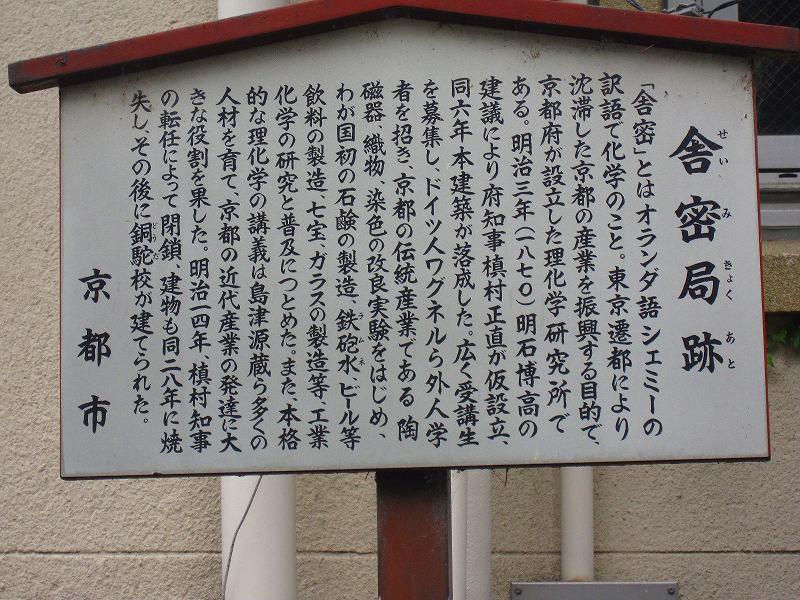 舎密局跡
せいみきょくあと
「舎密」とはオランダ語シェミーの
訳語で化学のこと。東京遷都により
沈滞した京都の産業を振興する目的で、
京都府が設立した理化学研究所で
ある。明治三年(一八七〇)明石博高の
建議により府知事槙村正直が仮設立、
同六年本建築が落成した。広く受講生
を募集し、ドイツ人ワグネルら外人学
者を招き、京都の伝統産業である陶
磁器、織物、染色の改良実験をはじめ、
わが国初の石鹸の製造、鉄砲水、ビール等
ラムネ
飲料の製造、七宝、ガラスの製造等、工業
化学の研究と普及につとめた。また、本格
的な理化学の講義は島津源蔵ら多くの
人材を育て、京都の近代産業の発達に大
きな役割を果した。明治一四年、槙村知事
の転任によって閉鎖、建物も同二八年に焼
失し、その後に銅駝校が建てられた。
どうだ
京都市